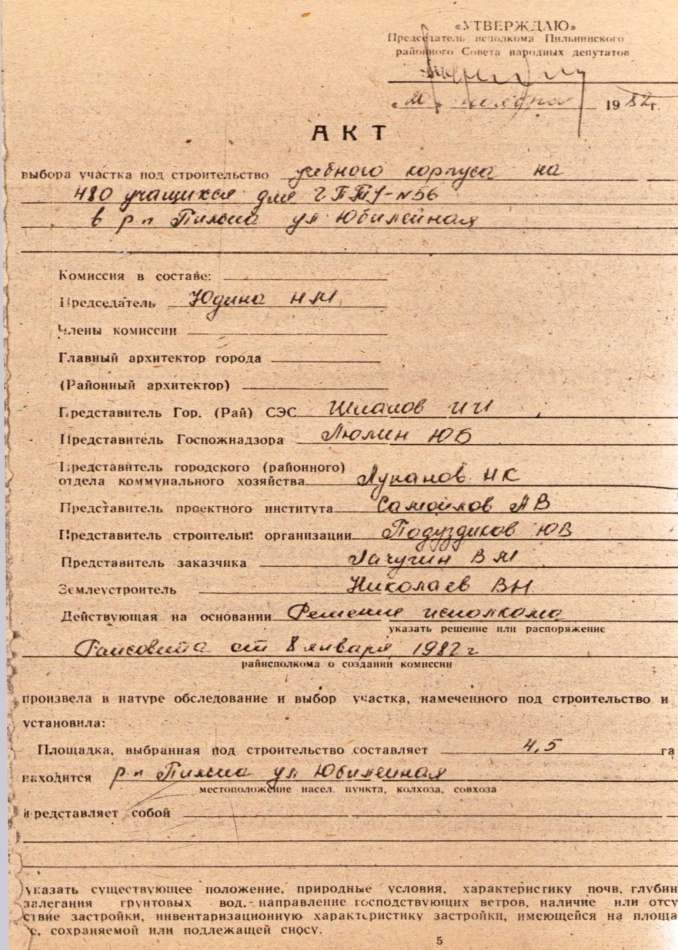 «УТВЕРЖДАЮ»
Председатель исполкома Пильнинского
районного Совета народных депутатов
« 20 » 1982г.
АКТ
выбора участка под строительство учебного корпуса на
480 учащихся для ГПТУ-№56
в р.п Пильна ул Юбилейная
Комиссия в составе:
Председатель Юдина Н М.
Члены комиссии
Главный архитектор города
(Районный архитектор)
Представитель Гор. (Рай) СЭС Шпалов И И
Представитель Госпожнадзора Люлин Ю Б
Представитель городского (районного)
отдела коммунального хозяйства Луканов Н К
Представитель проектного института Самойлов А В
Представитель строительн: организации Подуздиков Ю В
Представитель заказчика Лачугин В М
Землеустроитель Николаев В Н
Действующая на основании Решение исполкома
указать решение или распоряжение
Райсовета от 8 января 1982 г
райисполкома о создании комиссии
произвела в натуре обследование и выбор участка, намеченного под строительство и
установила:
Площадка, выбранная под строительство составляет 4,5 га
находится р-п Пильна ул Юбилейная
местоположение насел. пункта, колхоза, совхоза
представляет собой
указать существующее положение, природные условия, характеристику почв, глубин
залегания грунтовых вод, направление господствующих ветров, наличие или отсу
ствие застройки, инвентаризационную характеристику застройки, имеющейся на площа
е, сохраняемой или подлежащей сносу.
5